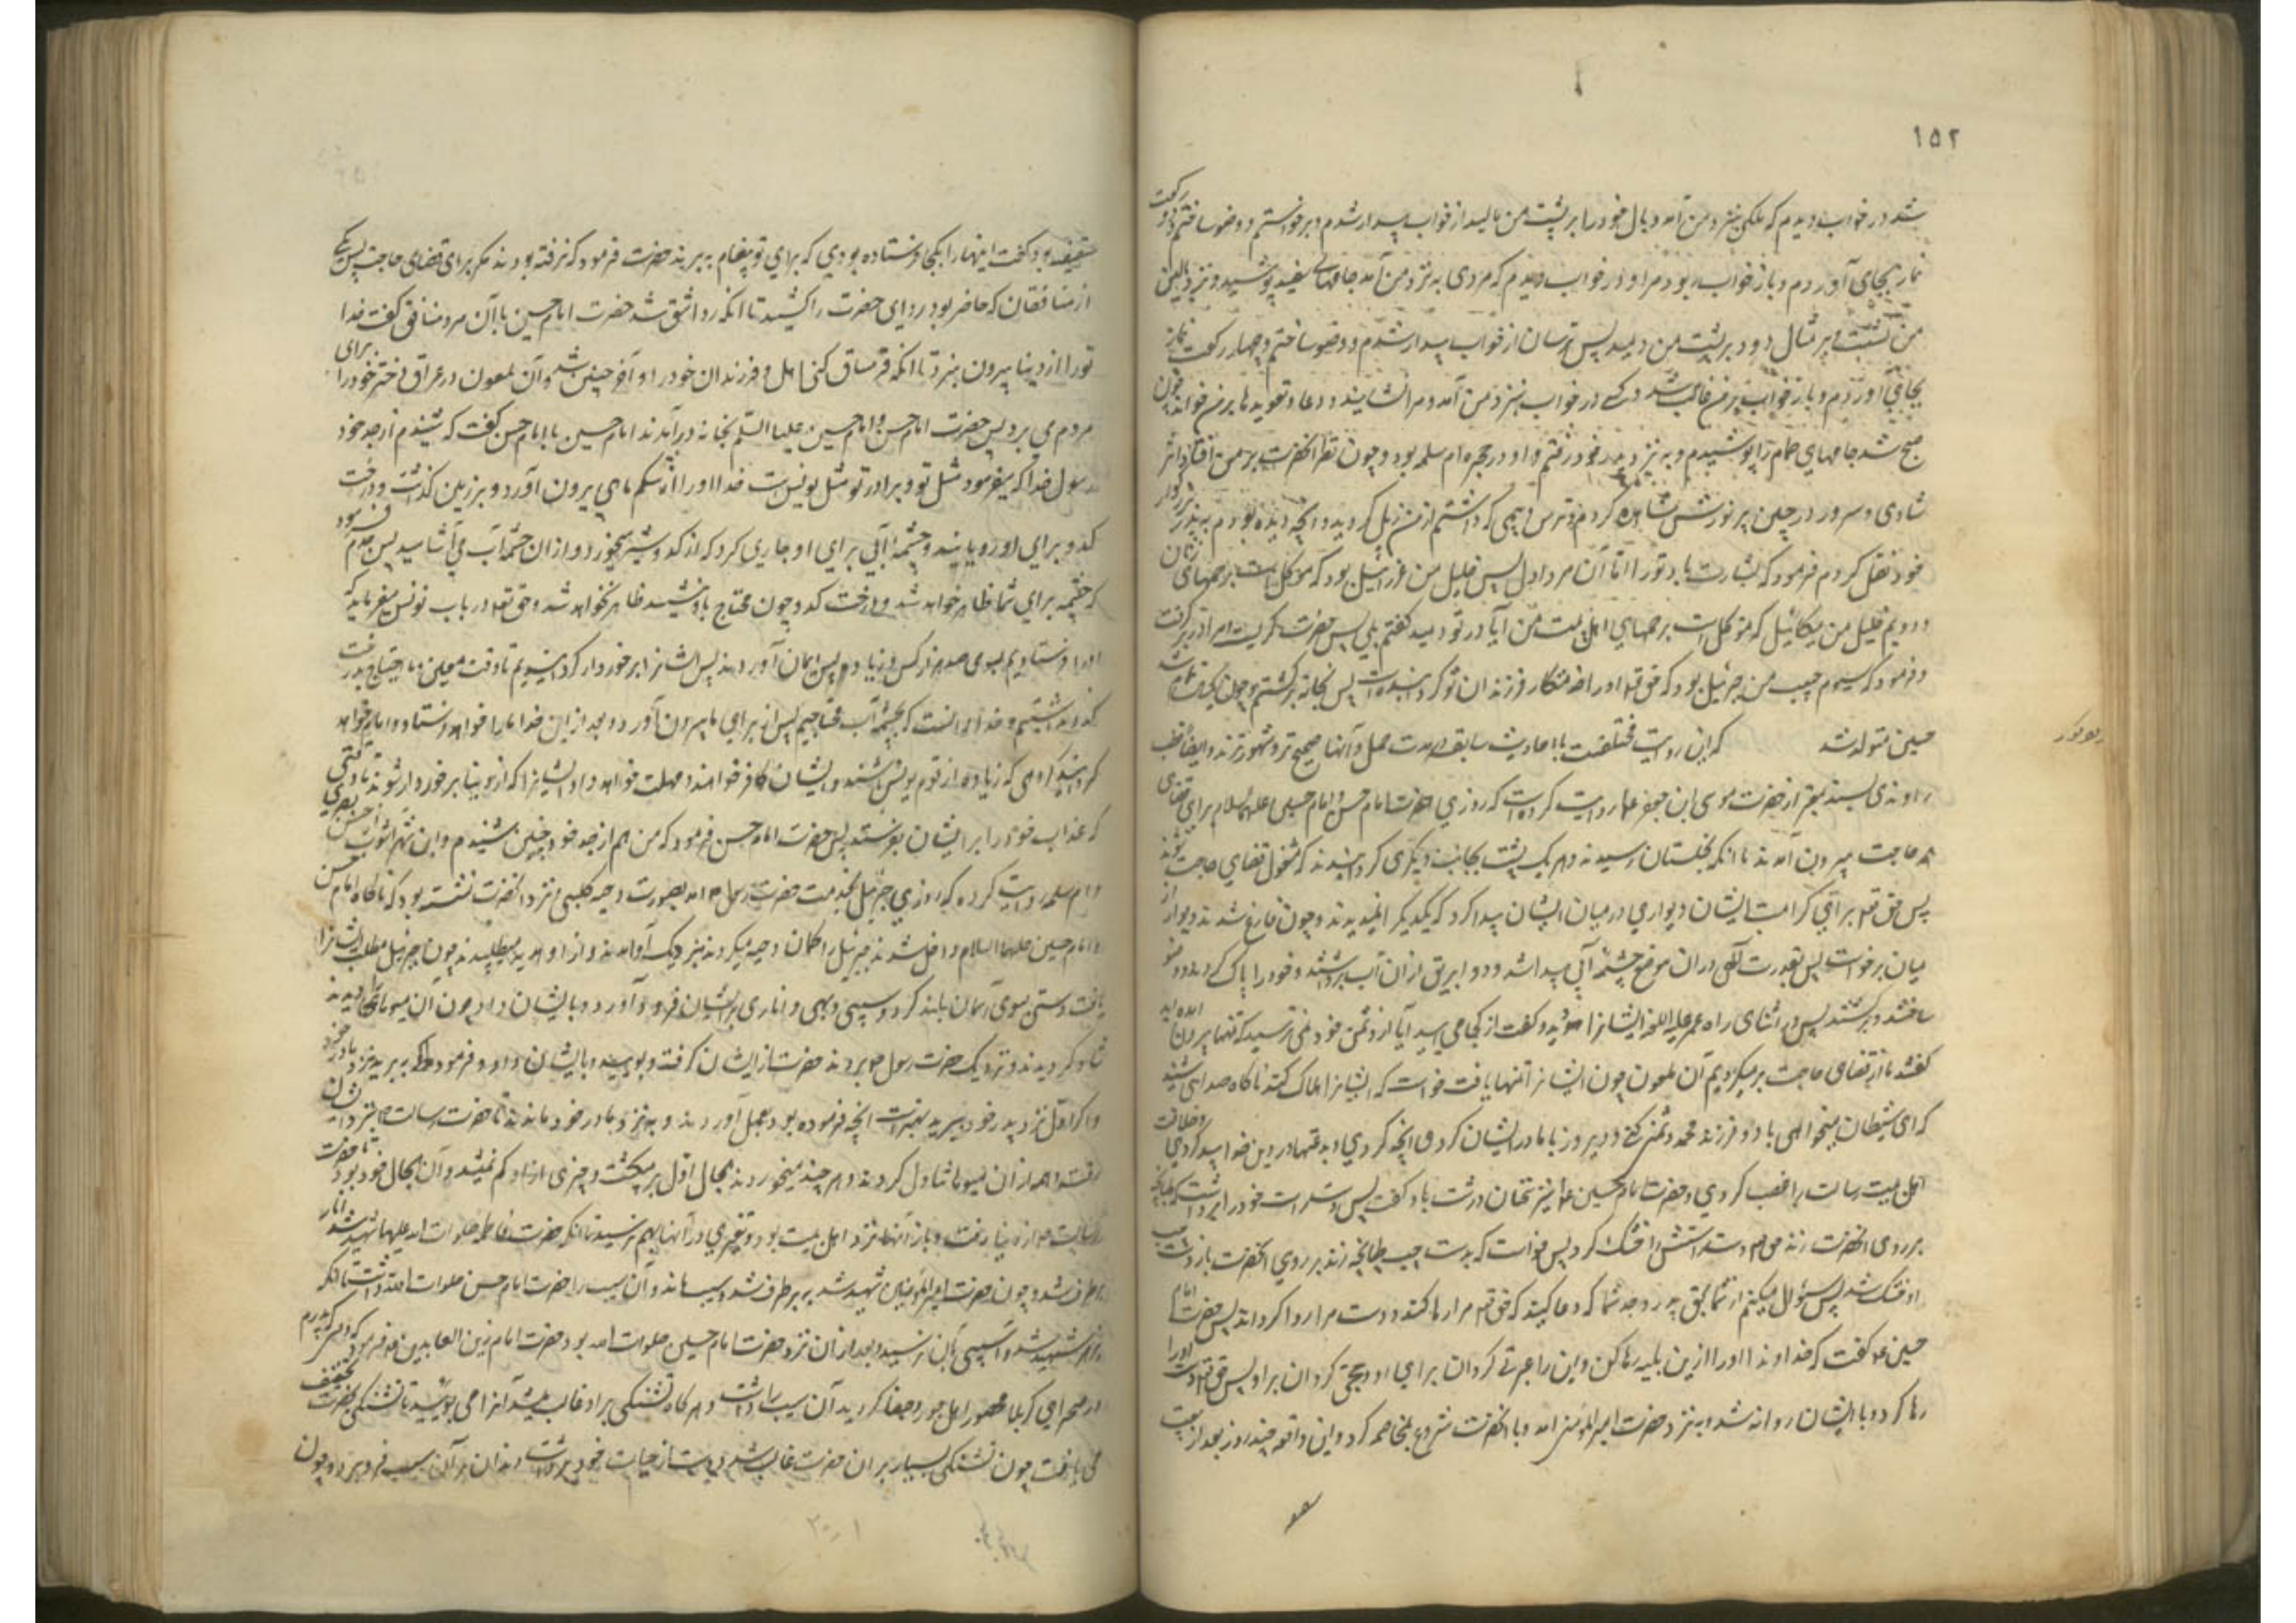 ۱۵۲
شد در خواب دیدم که ملکی بنزد من آمد و بال خود را بر پشت من مالید از خواب بیدار شدم و برخواستم و وضو ساختم و دو رکعت
نماز بجای آوردم و باز خواب ربود مرا و در خواب دیدم که مردی به نزد من آمد جامهای سفید پوشیده و نزد بالین
من نشست و بر پشت من دمید پس ترسان از خواب بیدار شدم و وضو ساختم و چهار رکعت نماز
بجای آوردم و باز خواب بر من غالب شد کسی در خواب بنزد من آمد و مرا نشانید و دعا و تعویذها بر من خواند چون
صبح شد جامهای حمام را پوشیدم و به نزد پدر خود رفتم و او در حجره ام سلمه بود و چون نظر آنحضرت بر من افتاد اثر
شادی و سرور در جبین پر نورش مشاهده کردم و ترس و بیمی که داشتم از من زایل گردید و آنچه دیده بودم به پدر بزرگوار
خود نقل کردم فرمود که بشارت باد تو را اما آن مرد اول پس خلیل من عزرائیل بود که موکل است برحمهای زنان
و دویم خلیل من میکائیل که موکل است برحمهای اهل بیت من آیا در تو دمید گفتم بلی پس حضرت گریست و مرا در بر گرفت
و فرمود که سیوم حبیب من جبرئیل بود که حق تعالی او را خدمتکار فرزندان تو گردانیده است پس بخانه برگشتم و چون
حسین متولد شد که این روایت مختلفست با احادیث سابقه در مدت حمل و آنها صحیح تر و مشهورترند و ایضا قطب
راوندی بسند معتبر از حضرت موسی ابن جعفر ع روایت کرده است که روزی حضرت امام حسن و امام حسین علیهما السلام برای قضای
حاجت بیرون آمدند تا آنکه بنخلستان رسیدند و هر یک پشت بجانب دیگری گردانیدند که مشغول قضای حاجت شوند
پس حق تعالی برای کرامت ایشان دیواری در میان ایشان پیدا کرد که یکدیگر را نمیدیدند و چون فارغ شدند دیوار از
میان برخواست پس بقدرت الهی در آن موضع چشمه آبی پیدا شد و دو ابریق از آن آب برداشتند و خود را پاک کردند و وضو
ساختند و برگشتند پس در اثنای راه عمر علیه اللعنه ایشانرا دید و گفت از کجا می آیید آیا از دشمن خود نمی ترسید که تنها بیرون آمده اید
گفتند ما از قضای حاجت برمیگردیم آن ملعون چون ایشانرا تنها یافت خواست که ایشانرا هلاک کند ناگاه صدایی شنید
که ای شیطان میخواهی با دو فرزند محمد دشمنی کنی و دیروز با مادر ایشان کردی آنچه کردی و بدعتها در دین خدا پیدا کردی و خلافت
اهل بیت رسالت را غصب کردی و حضرت امام حسین ع نیز سخنان درشت باو گفت پس دست خود را برداشت که طپانچه
بر روی آنحضرت زند حق تعالی دستش را خشک کرد پس خواست که بدست چپ طپانچه زند بر روی آنحضرت باز دست چپ
او خشک شد پس گفت سؤال میکنم از شما بحق پدر و جد شما که دعا کنید که حق تعالی مرا رها کند و دست مرا روا گرداند پس حضرت امام
حسین ع گفت که خداوندا او را ازین بلیه رها کن و این را عبرتی گردان برای او و حجتی گردان بر او پس حق تعالی دست او را
رها کرد و با ایشان روانه شد و بنزد حضرت امیرالمؤمنین آمد و با آنحضرت شروع بمخاصمه کرد و این واقعه چند روز بعد از بیعت
سقیفه بود گفت اینها را بکجا فرستاده بودی که برای تو پیغام به برند حضرت فرمود که نرفته بودند مگر برای قضای حاجت پس یکی
از منافقان که حاضر بود ردای حضرت را کشید تا آنکه ردا شق شد حضرت امام حسین با آن مرد منافق گفت خدا
تو را از دنیا بیرون نبرد تا آنکه قرمساق کنی اهل و فرزندان خود را و آخر چنین شد و آن ملعون در عراق دختر خود را برای
مردم می برد پس حضرت امام حسن و امام حسین علیهما السلم بخانه درآمدند امام حسین با امام حسن گفت که شنیدم از جد خود
رسول خدا که میفرمود مثل تو و برادر تو مثل یونس است خدا او را از شکم ماهی بیرون آورد و بر زمین گذاشت و درخت
کدو برای او رویانید و چشمه آبی برای او جاری کرد که از کدو میخورد و از آن چشمه آب می آشامید پس جدم فرمود
که چشمه برای شما ظاهر خواهد شد و درخت کدو چون محتاج باو نیستید ظاهر نخواهد شد و حق تعالی در باب یونس میفرماید که
او را فرستادیم بسوی صد هزار کس و زیاده پس ایمان آوردند پس ایشانرا برخوردار گردانیدیم تا وقت معین و ما احتیاج بدرخت
کدو نداشتیم و خدا دانست که بچشمه آب محتاجیم پس از برای ما بیرون آورد و بعد از این خدا ما را خواهد فرستاد و امام خواهد
گردانید بگروهی که زیاده از قوم یونس باشند و ایشان کافر خواهند و مهلت خواهد داد ایشانرا که از دنیا برخوردار شوند تا وقتی
که عذاب خود را بر ایشان بفرستد پس حضرت امام حسن فرمود که من هم از جد خود چنین شنیدم و ابن شهر آشوب از حسن بصری
و ام سلمه روایت کرده که روزی جبرئیل بخدمت حضرت رسول ص آمد بصورت دحیه کلبی و نزد آنحضرت نشسته بود که ناگاه امام حسن
و امام حسین علیهما السلام داخل شدند جبرئیل را گمان دحیه میکردند بنزدیک او آمدند و از او هدیه میطلبیدند چون جبرئیل مطلب ایشانرا
یافت دستی بسوی آسمان بلند کرد و سیبی و بهی و اناری برای ایشان فرود آورد و با ایشان داد چون آن میوها دیدند
شاد گردیدند و نزدیک حضرت رسول ص بردند حضرت از ایشان گرفت و بویید و با ایشان داد و فرمود که به برید بنزد مادر خود
و اگر اول نزد پدر خود ببرید بهتر است آنچه فرموده بود بعمل آوردند و به نزد پدر و مادر خود ماندند تا حضرت رسالت ص بنزد ایشان
رفت و همه از آن میوها تناول کردند و هر چند میخوردند بحال اول برمیگشت و چیزی از او کم نمیشد و آن بحال خود بود تا حضرت
رسالت ص از دنیا رفت و باز آنها نزد اهل بیت بود و تغییری در آنها بهم نرسید تا آنکه حضرت فاطمه صلوات الله علیها شهید شد انار
برطرف شد و چون حضرت امیرالمؤمنین شهید شد به برطرف شد و سیب ماند و آن سیب را حضرت امام حسن صلوات الله داشت تا آنکه
بزهر شهید شد و آسیبی بآن نرسید و بعد از آن نزد حضرت امام حسین صلوات الله بود حضرت امام زین العابدین فرمود که پدرم
در صحرای کربلا محصور اهل جور و جفا گردید آن سیب را داشت و هر گاه تشنگی بر او غالب میشد آنرا می بویید تا تشنگی آنحضرت تخفیف
می یافت چون تشنگی بسیار بر آن حضرت غالب شد و دست از حیات خود برداشت دندان بر آن سیب فرو برد و چون